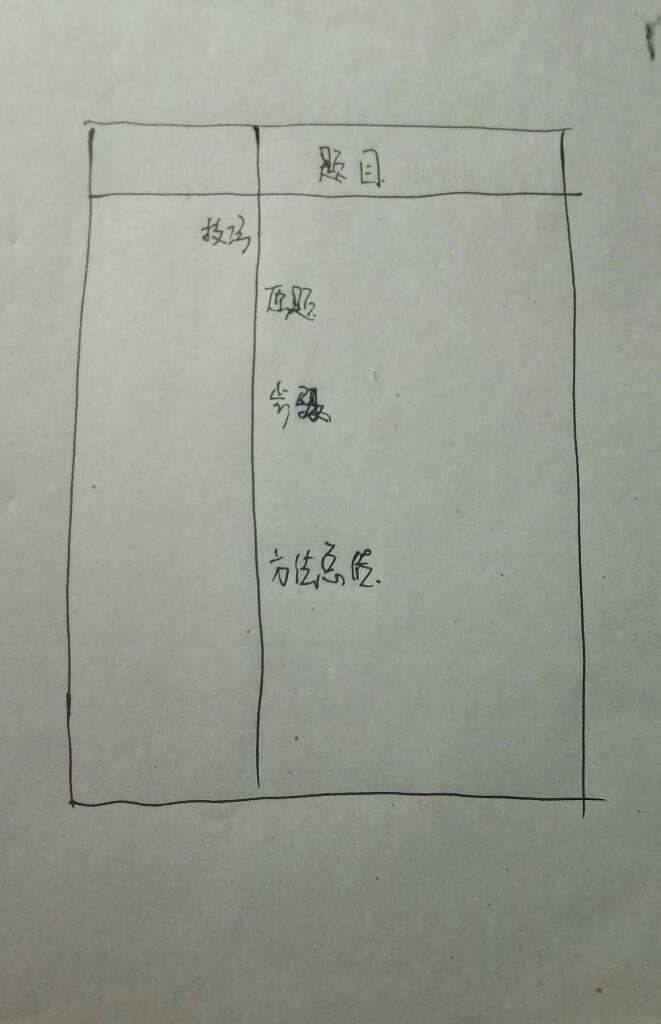 题目
技巧
原题
步骤
方法总结